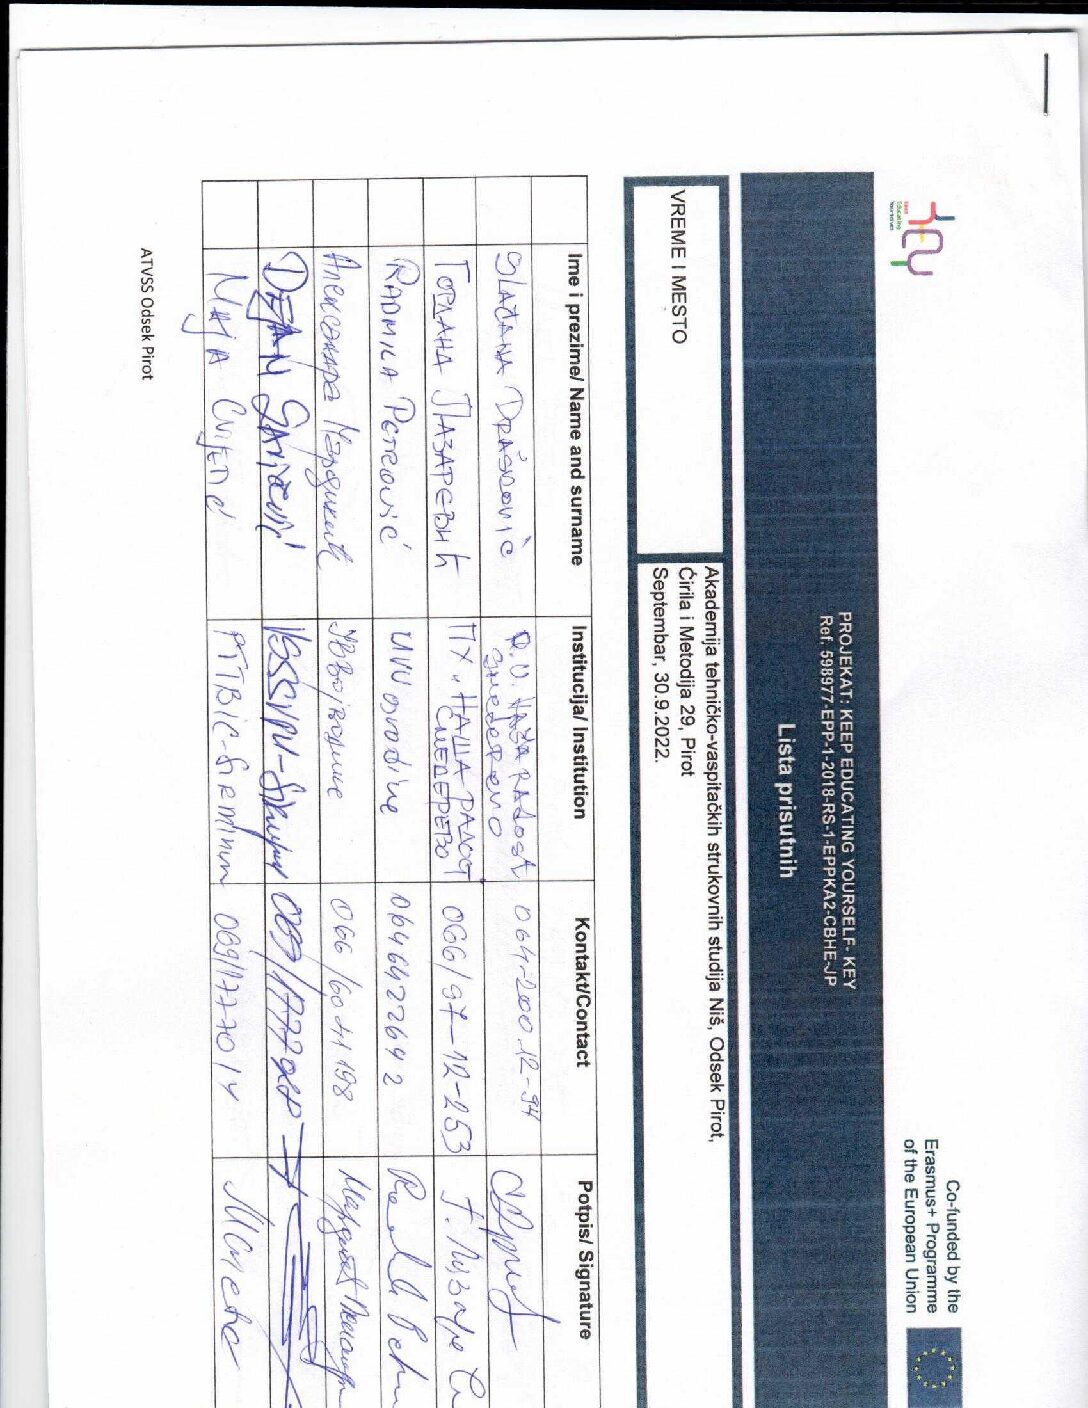 Keep
Educating
Yourselves
Co-funded by the
Erasmus+ Programme
of the European Union
PROJEKAT: KEEP EDUCATING YOURSELF- KEY
Ref. 598977-EPP-1-2018-RS-1-EPPKA2-CBHE-JP
Lista prisutnih
VREME I MESTO
Akademija tehničko-vaspitačkih strukovnih studija Niš, Odsek Pirot,
Ćirila i Metodija 29, Pirot
Septembar, 30.9.2022.
Ime i prezime/ Name and surname Institucija/ Institution Kontakt/Contact Potpis/ Signature
SLAĐANA DRAŠKOVIĆ P.U. NAŠA RADOST SMEDEREVO 064-200 12-94
ГОРДАНА ЛАЗАРЕВИЋ ПУ „НАША РАДОСТ" СМЕДЕРЕВО 066/97-12-253 Г. Лазаре
RADMILA PETROVIĆ UVVojvodine 0646422642
Александра 066/6041198
DEJAN 069/1
MAJA CVIJETIĆ PTTBIC-SIRMIUM 069/1777014
ATVSS Odsek Pirot